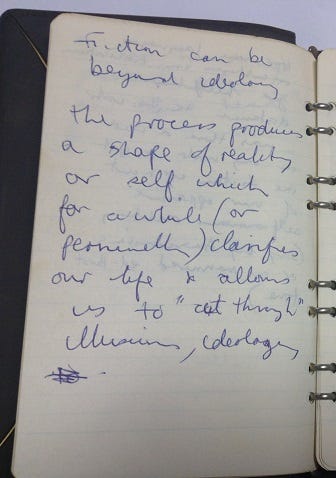 Fiction can be
beyond ideology
The process produces
a shape of reality
or self which
for a while (or
permanently) clarifies
our life & allows
us to "cut through"
illusions, ideology